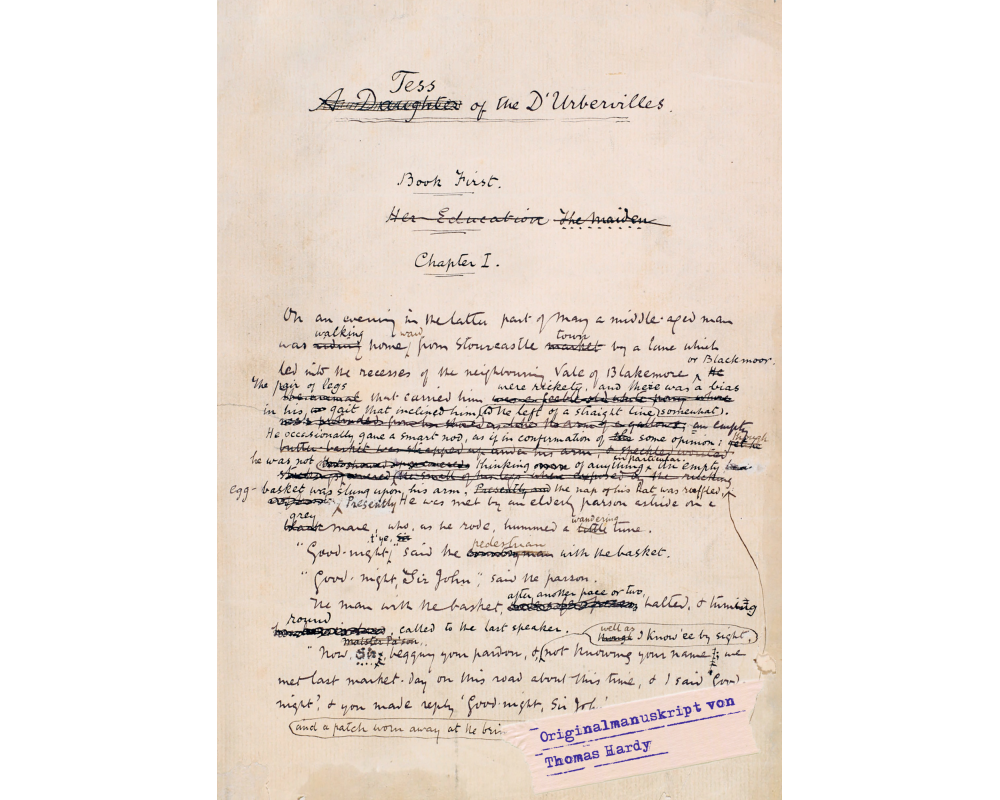 Tess
A Daughter of the D'Urbervilles.
Book First.
Her Education The Maiden
Chapter I.
On an evening in the latter part of May a middle-aged man
walking ward town
was riding home, from Stourcastle market by a lane which
or Blackmoor.
led into the recesses of the neighbouring Vale of Blakemore He
The pair of legs were rickety, and there was a bias
the animal that carried him was a feeble old white pony whose
in his gait that inclined him to the left of a straight line somewhat).
an empty
He occasionally gave a smart nod, as if in confirmation of some opinion; though
butter basket was strapped up under his arm,
he was not thinking of anything in particular. An empty
egg-basket was slung upon his arm. Presently the nap of his hat was ruffled,
Presently He was met by an elderly parson astride on a
grey wandering
black mare, who, as he rode, hummed a little tune.
t'ye. pedestrian
"Good-night," said the man with the basket.
"Good-night, Sir John", said the parson.
after another pace or two,
The man with the basket, halted, & turning
round well as
called to the last speaker. though I know 'ee by sight,
"Now, Sir, begging your pardon, & (not knowing your name); we
met last market-day on this road about this time, & I said 'Good
night', & you made reply 'Good-night, Sir Joh
and a patch worn away at the brim
Originalmanuskript von
Thomas Hardy